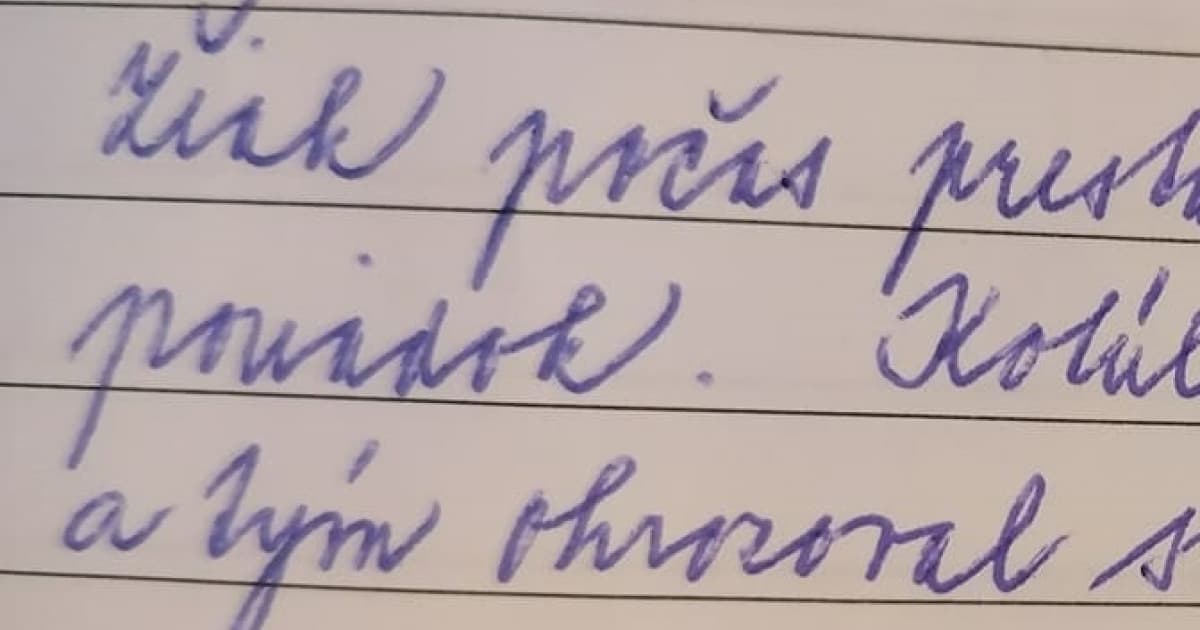 Žiak počas prest
poriadok. Kotúl
a tým ohrozoval s